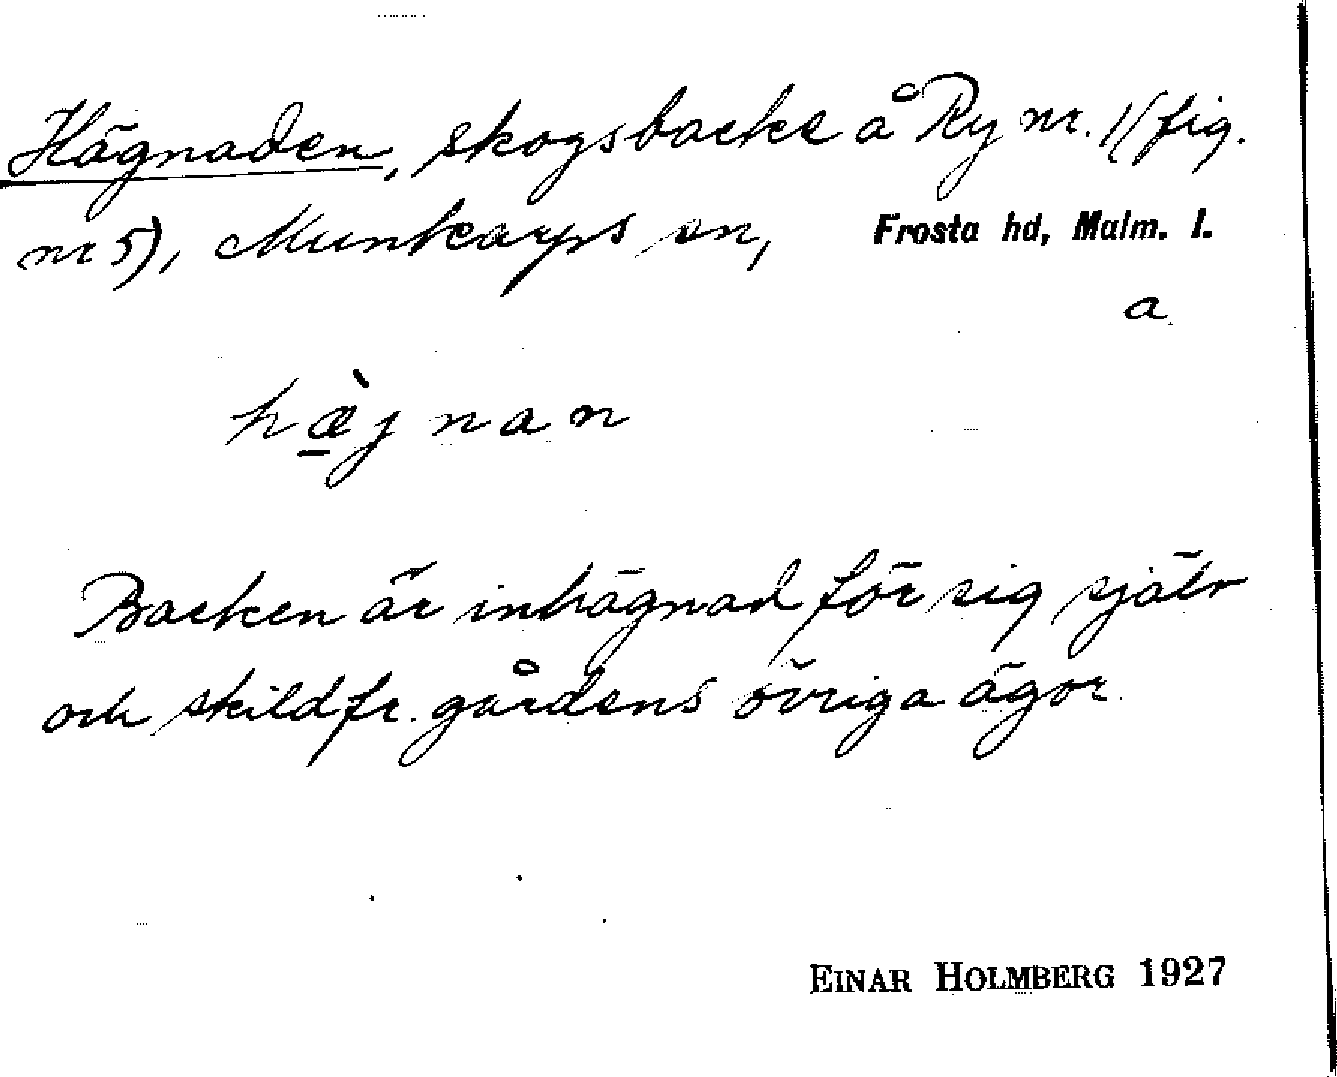 Hägnaden, skogsbacke å Ry nr. 1 (fig.
nr 5), Munkarps sn, Frosta hd, Malm. l.
a
hæ̠̀jnan
Backen är inhägnad för sig själv
och skild fr. gårdens övriga ägor.
EINAR HOLMBERG 1927